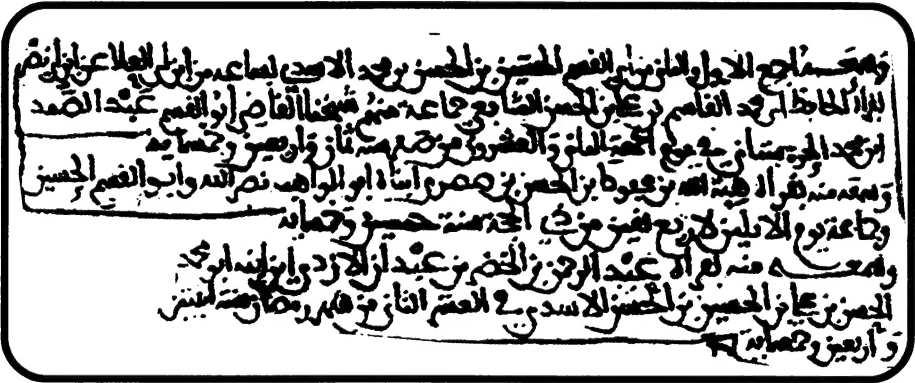 وسمعه أجمع الأول والثاني من أبي القسم الحسين بن الحسن بن محمد الاسدي لسماعه من ابن أبي العلا عن ابن أبي نصر
الحافظ أبو محمد القاسم بن علي بن الحسن الشافعي جماعة منهم شيخنا القاضي أبو القسم عبد الصمد
ابن محمد الحرستاني في يوم الجمعة الثاني والعشرين من صفر سنة ثمان وأربعين وخمسمايه
وسمعه منه بقراة هبة الله بن محفوظ بن الحسن بن صصرى ابناه أبو المواهب نصر الله وأبو القسم الحسين
وجماعة يوم الاثنين لأربع بقين من ذي الحجة سنة خمسين وخمسمايه
وسمعه منه بقراة عبد الرحمن بن الخضر بن عبدان الازدي ابن ابنه أبو محمد
الحسن بن علي بن الحسين بن الحسن الاسدي في العشر الثاني من شهر رمضان سنة اثنتين
وأربعين وخمسمايه